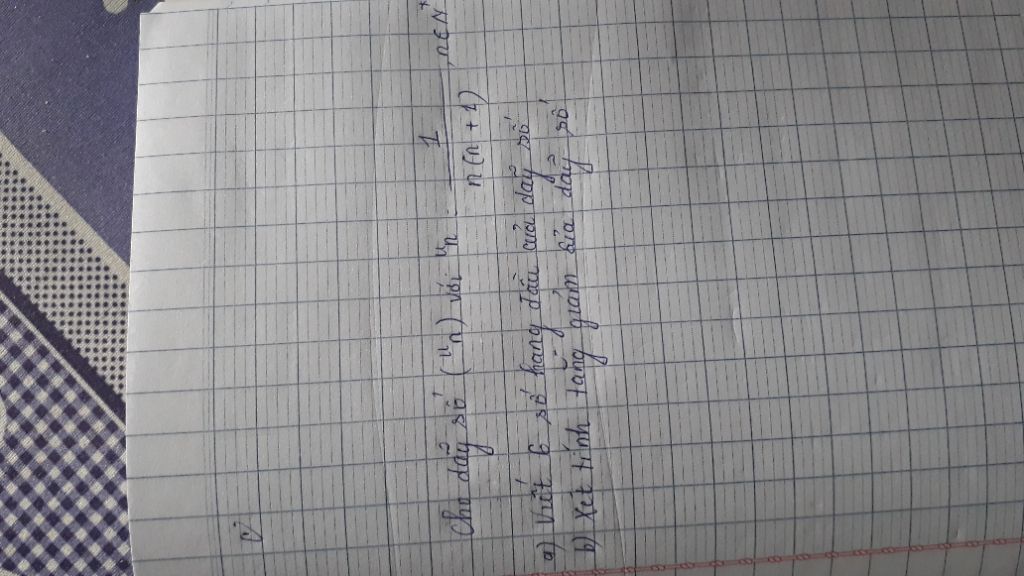 Cho dãy số (un) với un = 1/n(n + 1), n ∈ N*
a) Viết 6 số hạng đầu của dãy số
b) Xét tính tăng giảm của dãy số